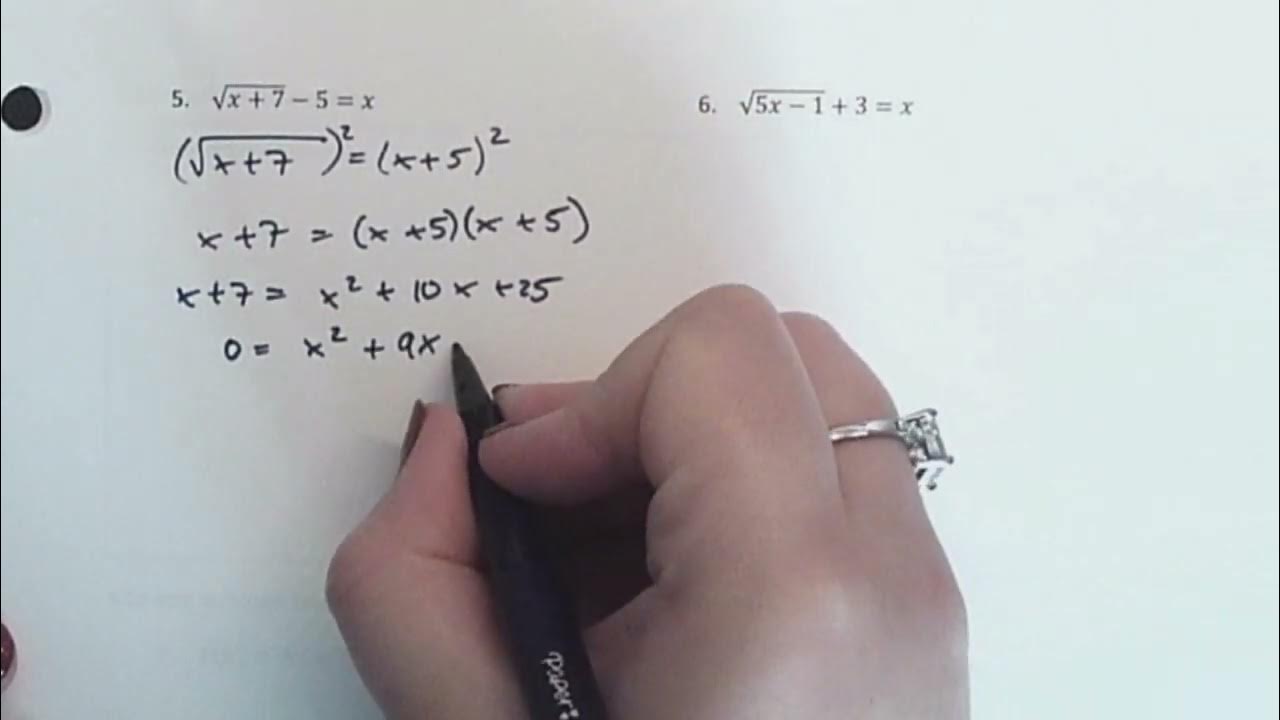 5. √(x + 7) − 5 = x
(√(x+7))² = (x+5)²
x+7 = (x+5)(x+5)
x+7 = x² + 10x +25
0 = x² + 9x
6. √(5x − 1) + 3 = x
paper: